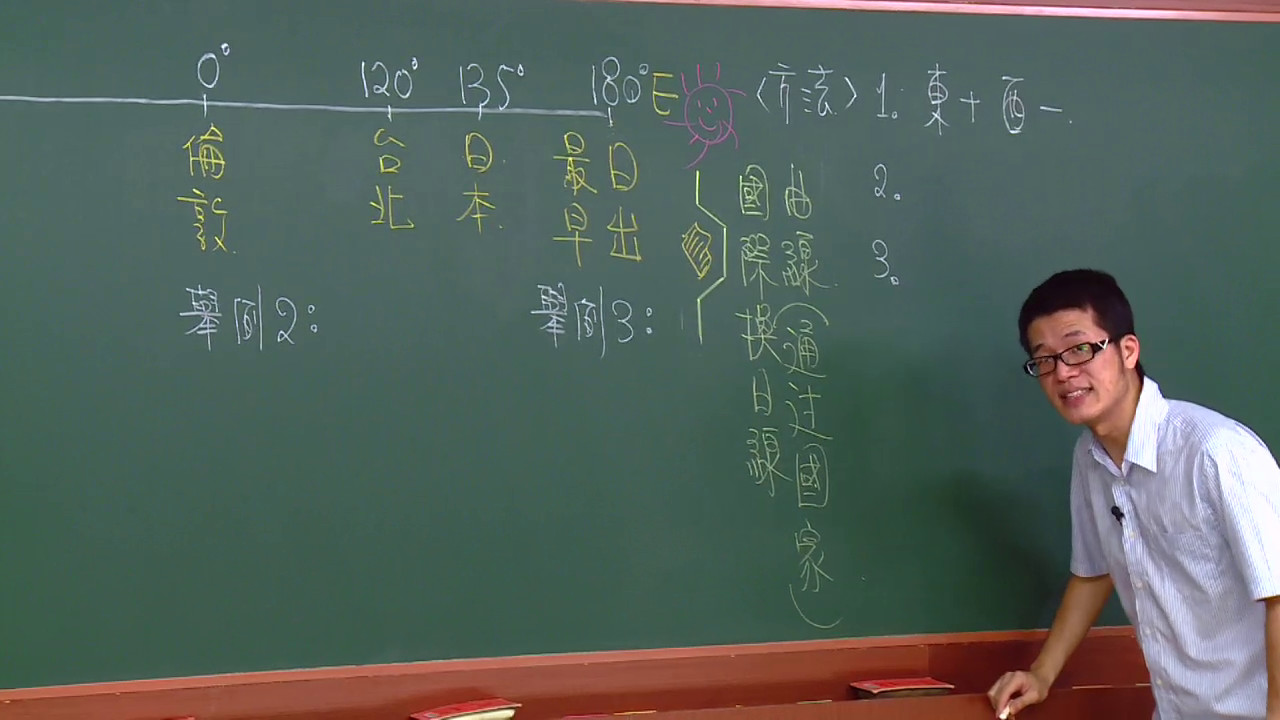 0° 120° 135° 180°E
倫敦
台北
日本
最早
日出
〈方法〉1. 東＋ 西－.
2.
3.
國際換日線
曲線(通过國家)
舉例2:
舉例3: